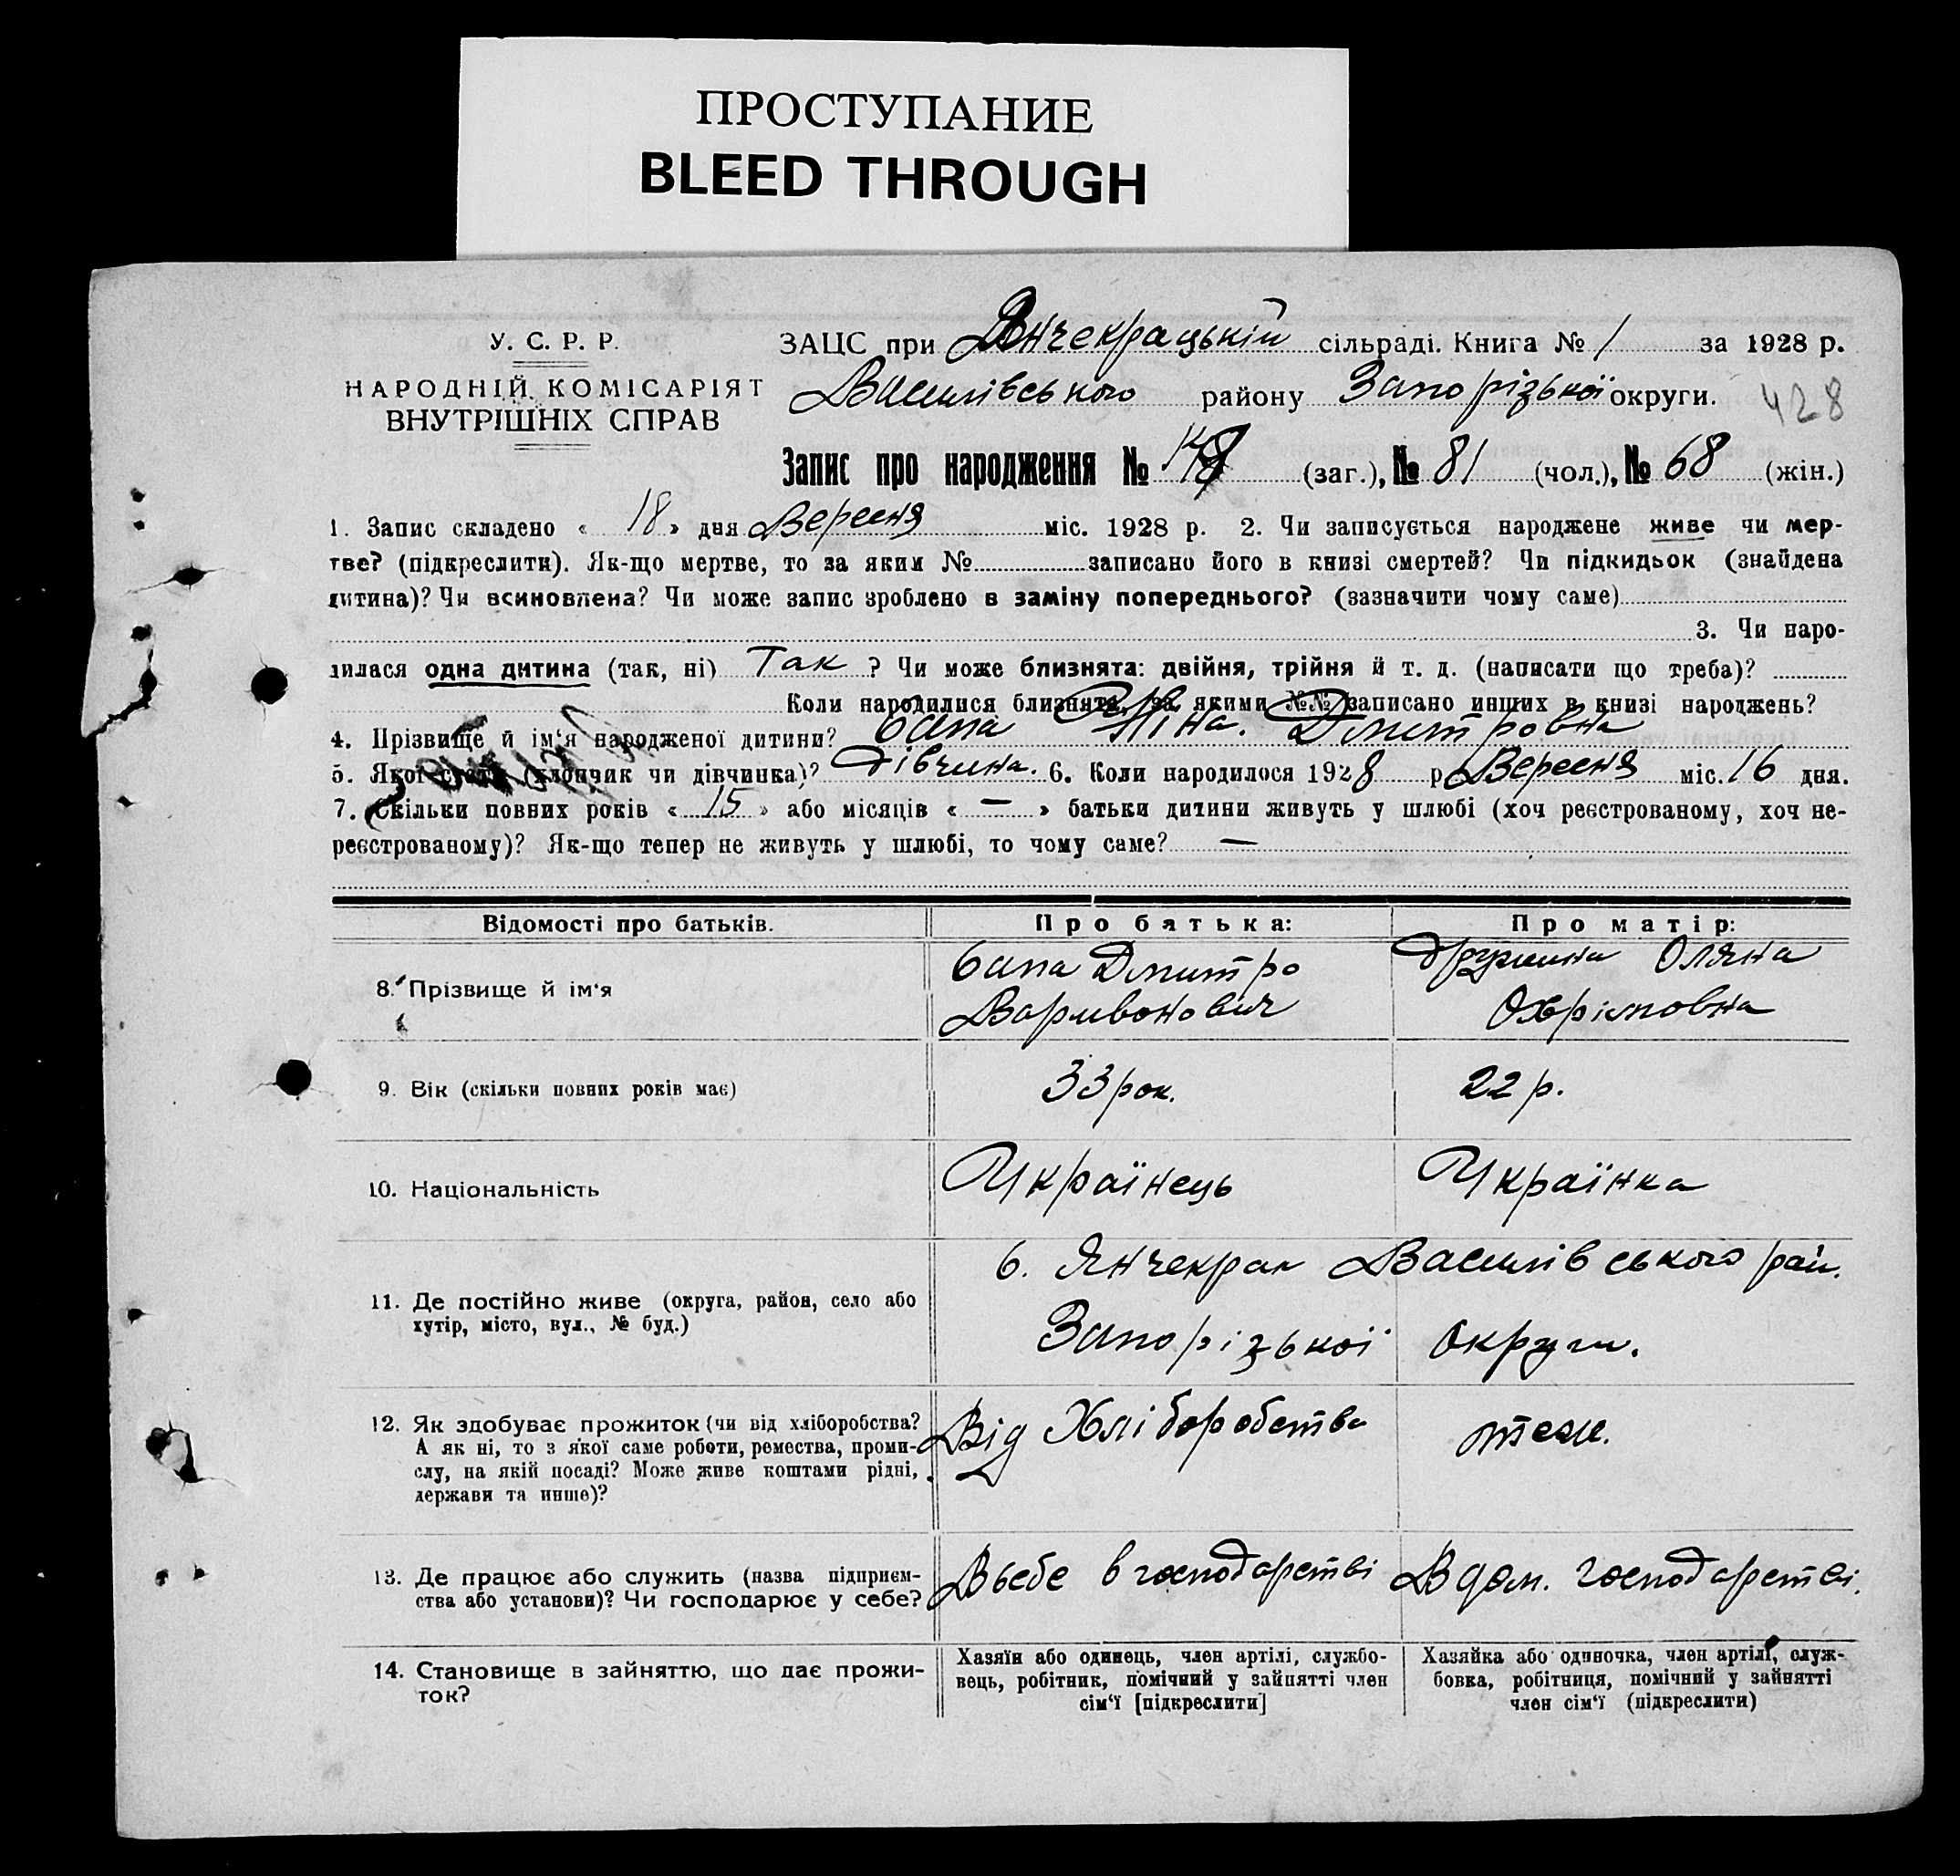 ПРОСТУПАНИЕ
BLEED THROUGH
У. С. Р. Р.
НАРОДНІЙ КОМІСАРІЯТ
ВНУТРІШНІХ СПРАВ
ЗАЦС при Янчекрацькій сільраді. Книга № 1 за 1928 р.
Василівського району Запорізької округи. 428
Запис про народження № (заг.), № 81 (чол.), № 68 (жін.)
1. Запис складено « 18 » дня Вересня міс. 1928 р. 2. Чи записується народжене живе чи мер-
тве? (підкреслити). Як-що мертве, то за яким № записано його в книзі смертей? Чи підкидьок (знайдена
дитина)? Чи всиновлена? Чи може запис зроблено в заміну попереднього? (зазначити чому саме)
3. Чи наро-
дилася одна дитина (так, ні) Так ? Чи може близнята: двійня, трійня й т. д. (написати що треба)?
Коли народилися близнята, за якими №№ записано инших в книзі народжень?
4. Прізвище й ім‘я народженої дитини? Сапа Ніна. Дмитровна
5. Якої статі (хлопчик чи дівчинка)? Дівчина. 6. Коли народилося 1928 р. Вересня міс. 16 дня.
7. Скільки повних років « 15 » або місяців « — » батьки дитини живуть у шлюбі (хоч реєстрованому, хоч не-
реєстрованому)? Як-що тепер не живуть у шлюбі, то чому саме? —
Відомості про батьків. Про батька: Про матір:
8. Прізвище й ім‘я
Сапа Дмитро
Варивонович
дружина Оляна
Охрімовна
9. Вік (скільки повних років має) 33 рок. 22 р.
10. Національність Українець Українка
11. Де постійно живе (округа, район, село або
хутір, місто, вул., № буд.)
с. Янчекрак Василівського рай.
Запорізької округи.
12. Як здобуває прожиток (чи від хліборобства?
А як ні, то з якої саме роботи, ремества, проми-
слу, на якій посаді? Може живе коштами рідні,
держави та инше)?
Від Хліборобства теж.
13. Де працює або служить (назва підприєм-
ства або установи)? Чи господарює у себе?
В себе в господарстві В дом. господарстві.
14. Становище в зайняттю, що дає прожи-
ток?
Хазяїн або одинець, член артілі, службо-
вець, робітник, помічний у зайнятті член
сім‘ї [підкреслити]
Хазяйка або одиночка, член артілі, служ-
бовка, робітниця, помічний у зайнятті
член сім‘ї (підкреслити)